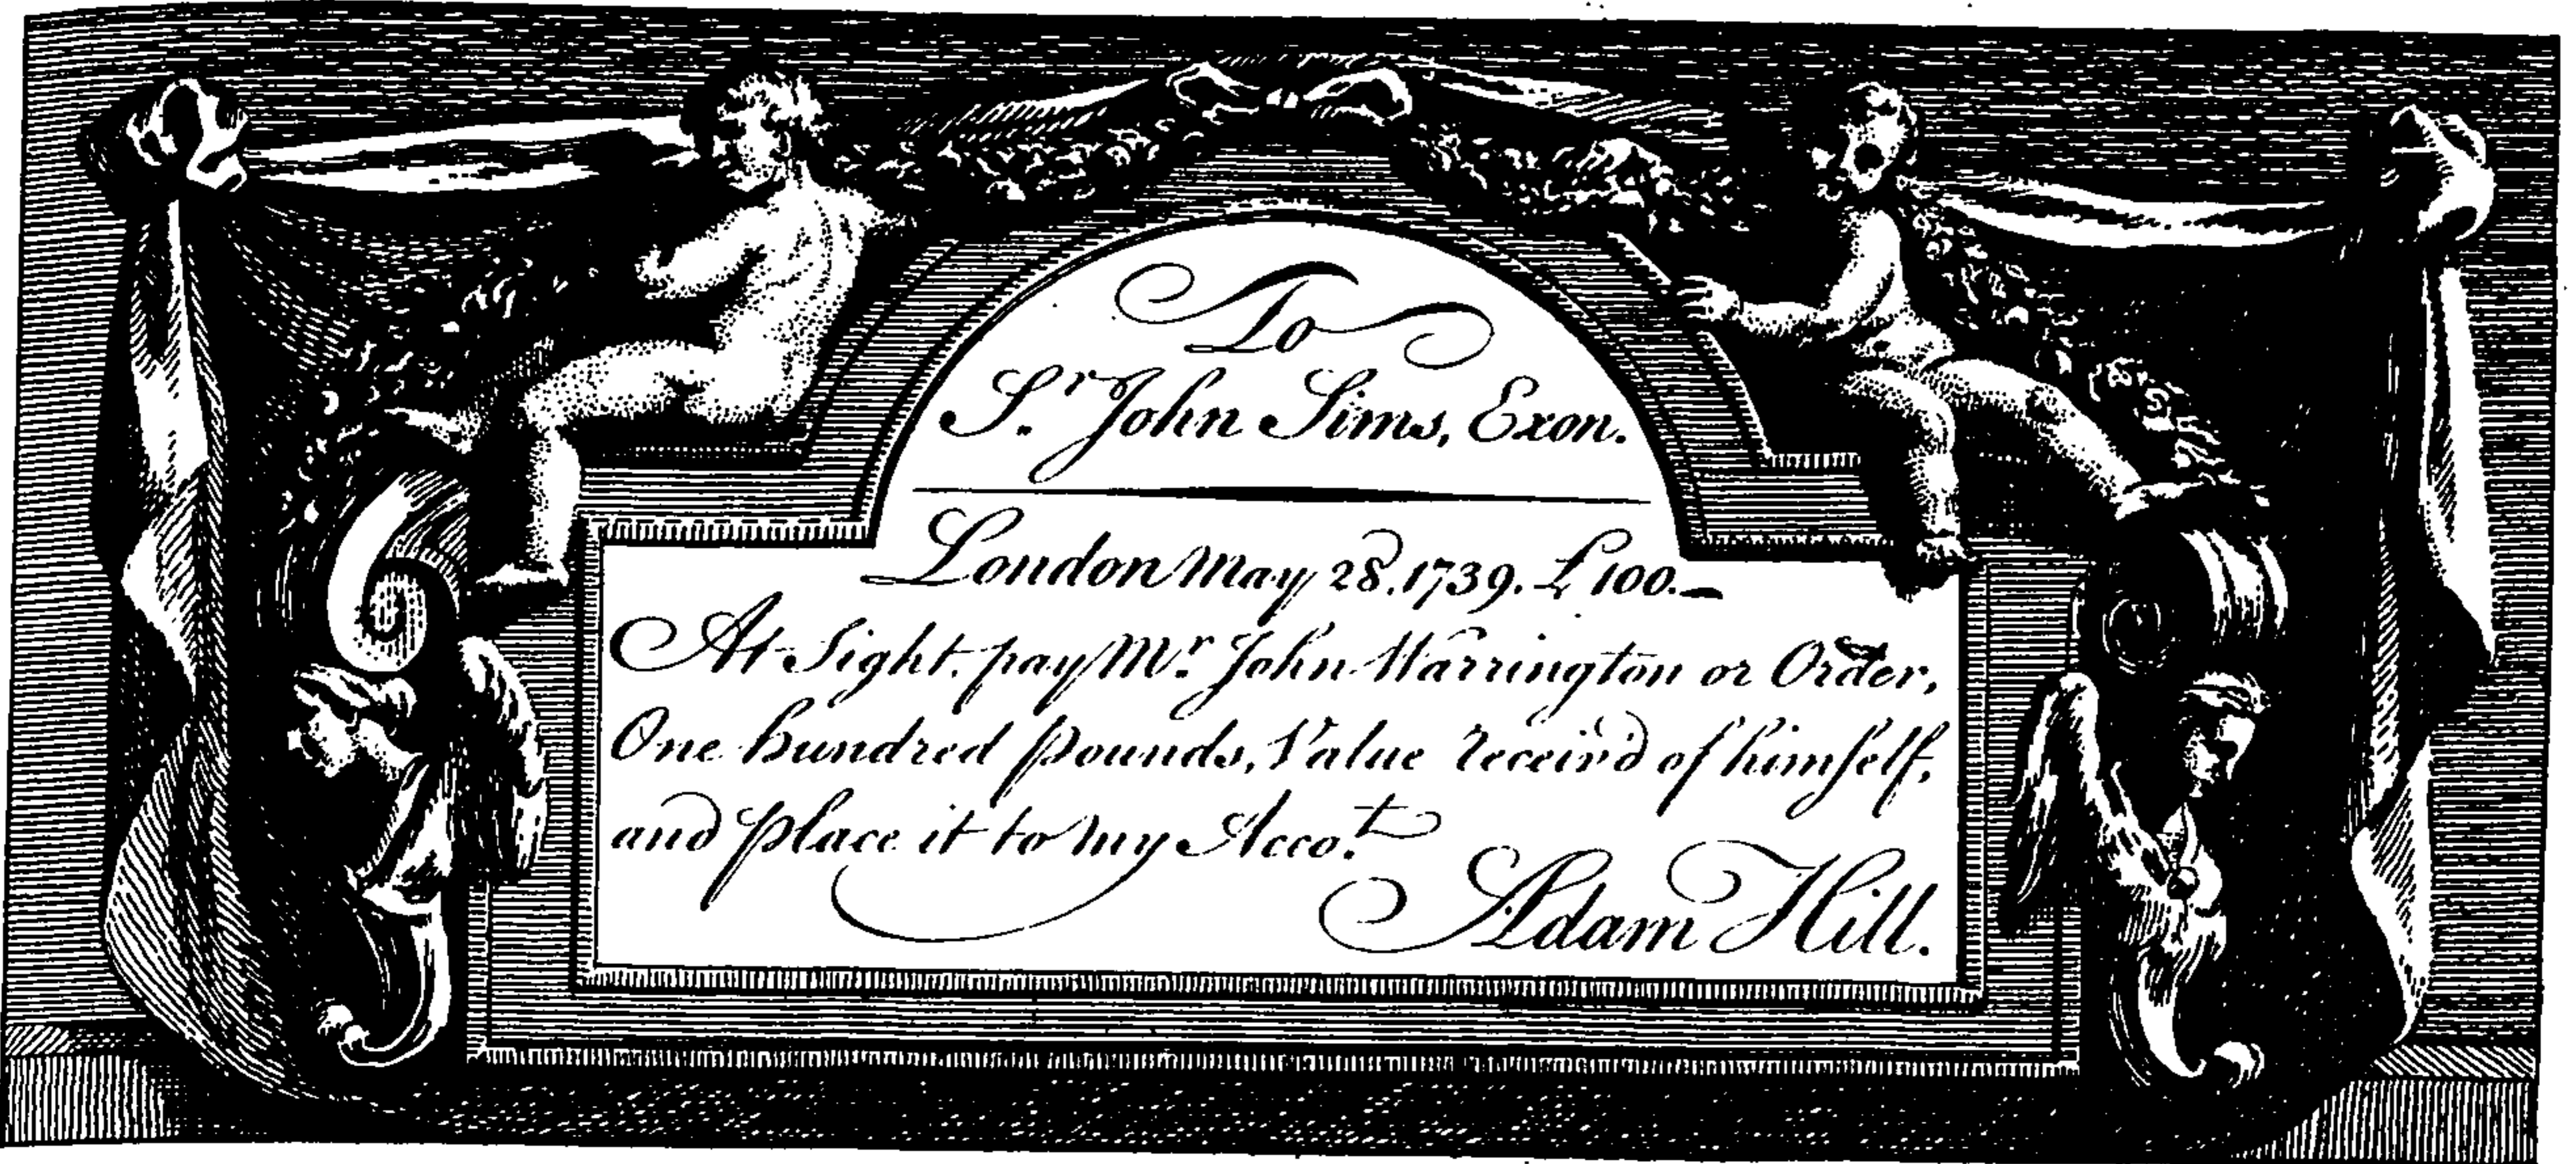 To
Sr. John Sims, Exon.
London May 28. 1739. £ 100.—
At Sight, pay Mr. John Warrington or Order,
One hundred pounds, Value receiv'd of himself,
and place it to my Accot.
Adam Hill.